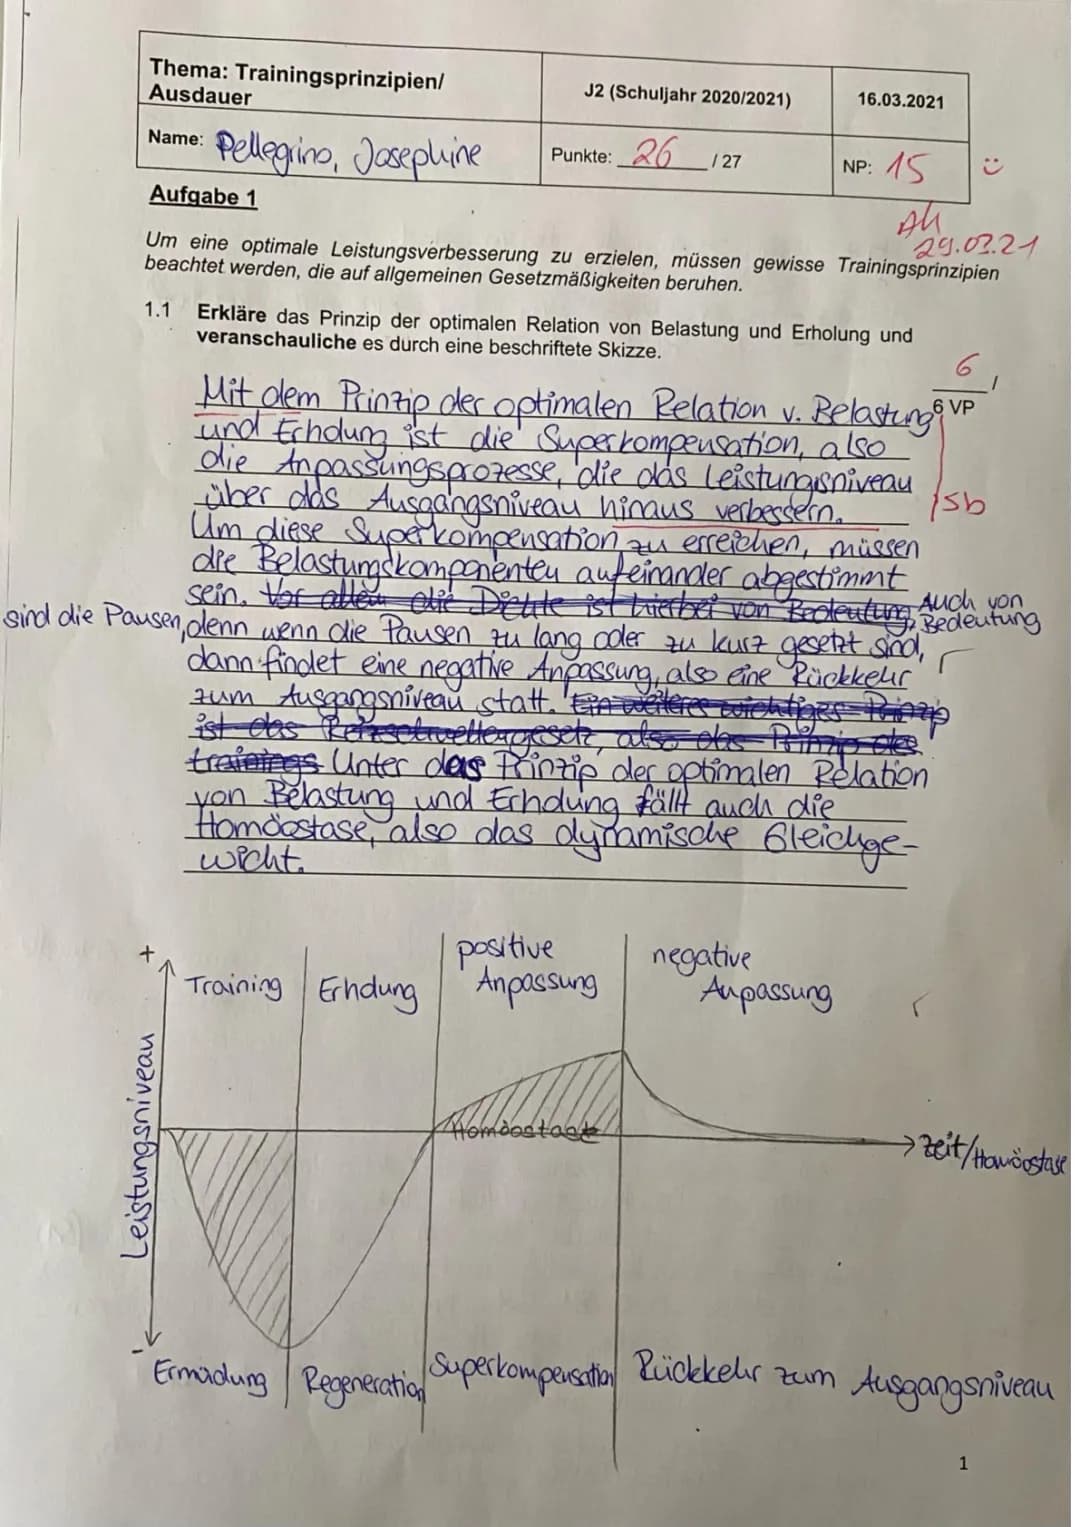 Thema: Trainingsprinzipien/
Ausdauer
J2 (Schuljahr 2020/2021)
16.03.2021
Name: Pellegrino, Josephine
Punkte: 26 / 27
NP: 15
29.03.21
Aufgabe 1
Um eine optimale Leistungsverbesserung zu erzielen, müssen gewisse Trainingsprinzipien
beachtet werden, die auf allgemeinen Gesetzmäßigkeiten beruhen.
1.1 Erkläre das Prinzip der optimalen Relation von Belastung und Erholung und
veranschauliche es durch eine beschriftete Skizze.
6 /
6 VP
Mit dem Prinzip der optimalen Relation v. Belastung
und Erholung ist die Superkompensation, also
die Anpassungsprozesse, die das Leistungsniveau
über das Ausgangsniveau hinaus verbessern.
Sb
Um diese Superkompensation zu erreichen, müssen
die Belastungskomponenten aufeinander abgestimmt
sein. Vor allem die Dichte ist hierbei von Bedeutung, Auch von Bedeutung
sind die Pausen, denn wenn die Pausen zu lang oder zu kurz gesetzt sind,
dann findet eine negative Anpassung, also eine Rückkehr
zum Ausgangsniveau statt. Ein weiteres wichtiges Prinzip
ist das Reizschwellengesetz, also das Prinzip des
trainings Unter das Prinzip der optimalen Relation
von Belastung und Erholung fällt auch die
Homöostase, also das dynamische Gleichge-
wicht.
+
Training
Erholung
positive
Anpassung
negative
Anpassung
Leistungsniveau
Homöostase
Zeit/Homöostase
-
Ermüdung
Regeneration
Superkompensation
Rückkehr zum Ausgangsniveau
1